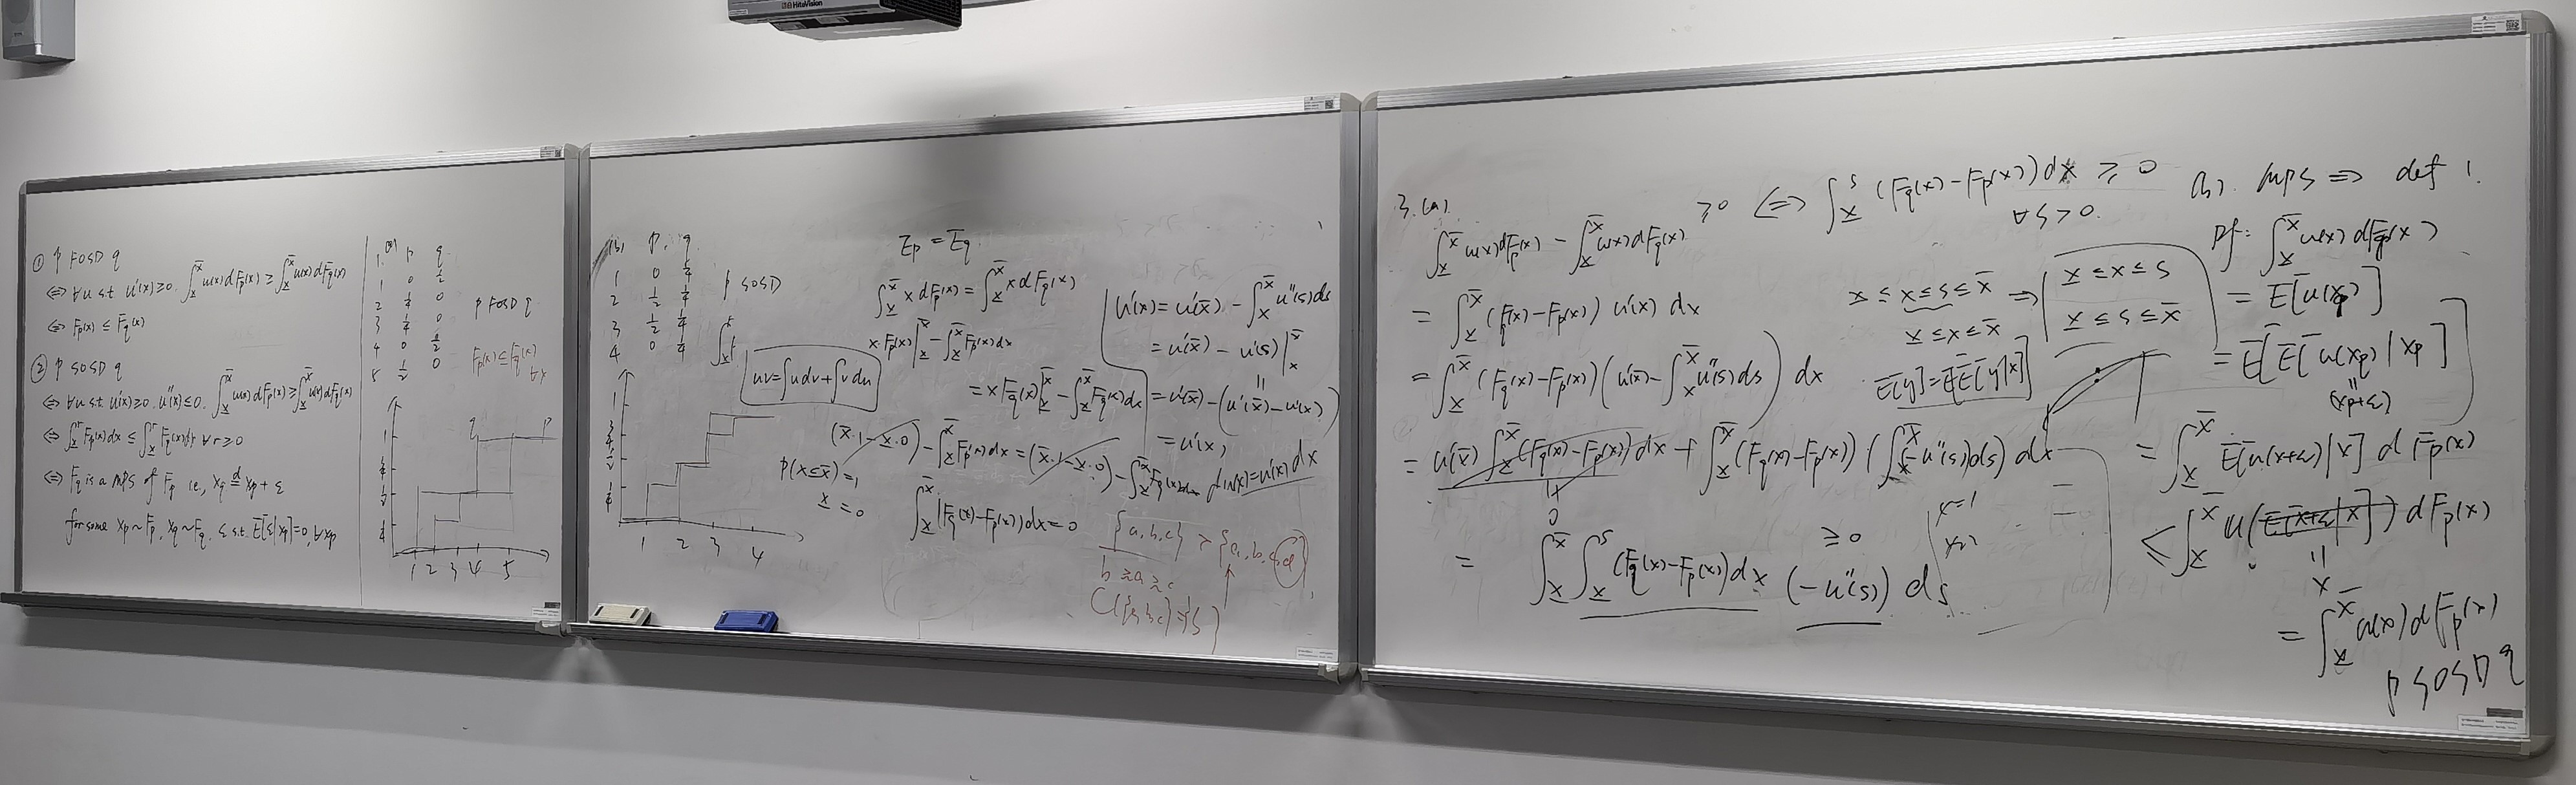 HiteVision
① p FOSD q
⇔ ∀u s.t. u'(x)≥0. ∫_x̲^x̄ u(x)dF_p(x) ≥ ∫_x̲^x̄ u(x)dF_q(x)
⇔ F_p(x) ≤ F_q(x)
② p SOSD q
⇔ ∀u s.t. u'(x)≥0. u''(x)≤0. ∫_x̲^x̄ u(x)dF_p(x) ≥ ∫_x̲^x̄ u(x)dF_q(x)
⇔ ∫_x̲^r F_p(x)dx ≤ ∫_x̲^r F_q(x)dx ∀r≥0
⇔ F_q is a MPS of F_q i.e, x_q =^d x_p + ε
for some x_p~F_p, x_q~F_q, ε s.t. E[ε|x_p]=0, ∀x_p
(a) p q
1 0 1/2
2 1/4 0
3 1/4 0
4 0 1/2
5 1/2 0
p FOSD q
F_p(x) ≤ F_q(x)
∀x
q p
1
1/2
1/4
1 2 3 4 5
(b) p. q
1 0 1/4
2 1/2 1/4
3 1/2 1/4
4 0 1/4
p SOSD
uv=∫udv+∫vdu
1
3/4
1/2
1/4
1 2 3 4
E_p = E_q
∫_x̲^x̄ x dF_p(x) = ∫_x̲^x̄ x dF_q(x)
x F_p(x)|_x̲^x̄ - ∫_x̲^x̄ F_p(x)dx
= x F_q(x)|_x̲^x̄ - ∫_x̲^x̄ F_q(x)dx
(x̄·1-x̲·0) - ∫_x̲^x̄ F_p(x)dx = (x̄·1-x̲·0) - ∫_x̲^x̄ F_q(x)dx
p(x≤x̄)=1
x̲ = 0
∫_x̲^x̄ (F_q(x)-F_p(x))dx = 0
u'(x) = u'(x̄) - ∫_x^x̄ u''(s)ds
= u'(x̄) - u'(s)|_x^x̄
= u'(x̄) - (u'(x̄) - u'(x))
= u'(x)
du(x)=u'(x)dx
{a,b,c} > {a,b,c,d}
b ≿ a ≿ c
3.(a).
∫_x̲^x̄ u(x)dF_p(x) - ∫_x̲^x̄ u(x)dF_q(x) ≥0 ⇔ ∫_x̲^s (F_q(x)-F_p(x))dx ≥ 0
∀s>0.
= ∫_x̲^x̄ (F_q(x)-F_p(x)) u'(x) dx
= ∫_x̲^x̄ (F_q(x)-F_p(x)) (u'(x̄) - ∫_x^x̄ u''(s)ds) dx
= u'(x̄) ∫_x̲^x̄ (F_q(x)-F_p(x))dx + ∫_x̲^x̄ (F_q(x)-F_p(x)) (∫_x^x̄ -u''(s)ds) dx
||
0
= ∫_x̲^x̄ ∫_x̲^s (F_q(x)-F_p(x))dx (-u''(s)) ds
≥0
x̲ ≤ x ≤ s ≤ x̄ ⇒ x̲ ≤ x ≤ s
x̲ ≤ x ≤ x̄
x̲ ≤ s ≤ x̄
E[y]=E[E[y|x]]
(b). MPS ⇒ def 1.
Pf: ∫_x̲^x̄ u(x) dF_q(x)
= E[u(x_q)]
= E[E[u(x_q)|x_p]]
||
(x_p+ε)
= ∫_x̲^x̄ E[u(x+ε)|x] dF_p(x)
≤ ∫_x̲^x̄ u(E[x+ε|x]) dF_p(x)
||
x
= ∫_x̲^x̄ u(x)dF_p(x)
p SOSD q